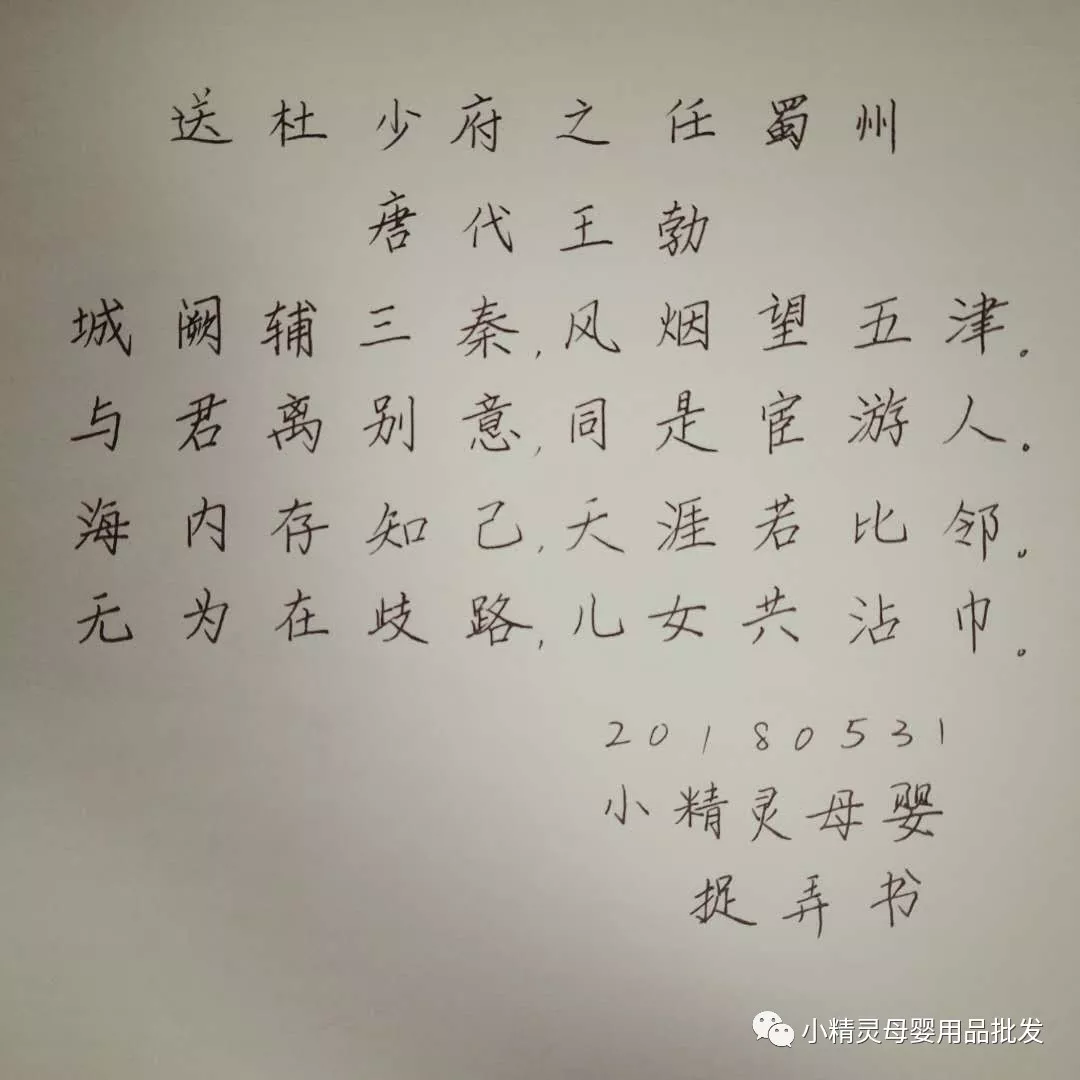 送杜少府之任蜀州
唐代王勃
城阙辅三秦,风烟望五津。
与君离别意,同是宦游人。
海内存知己,天涯若比邻。
无为在歧路,儿女共沾巾。
20180531
小精灵母婴
捉弄书
小精灵母婴用品批发